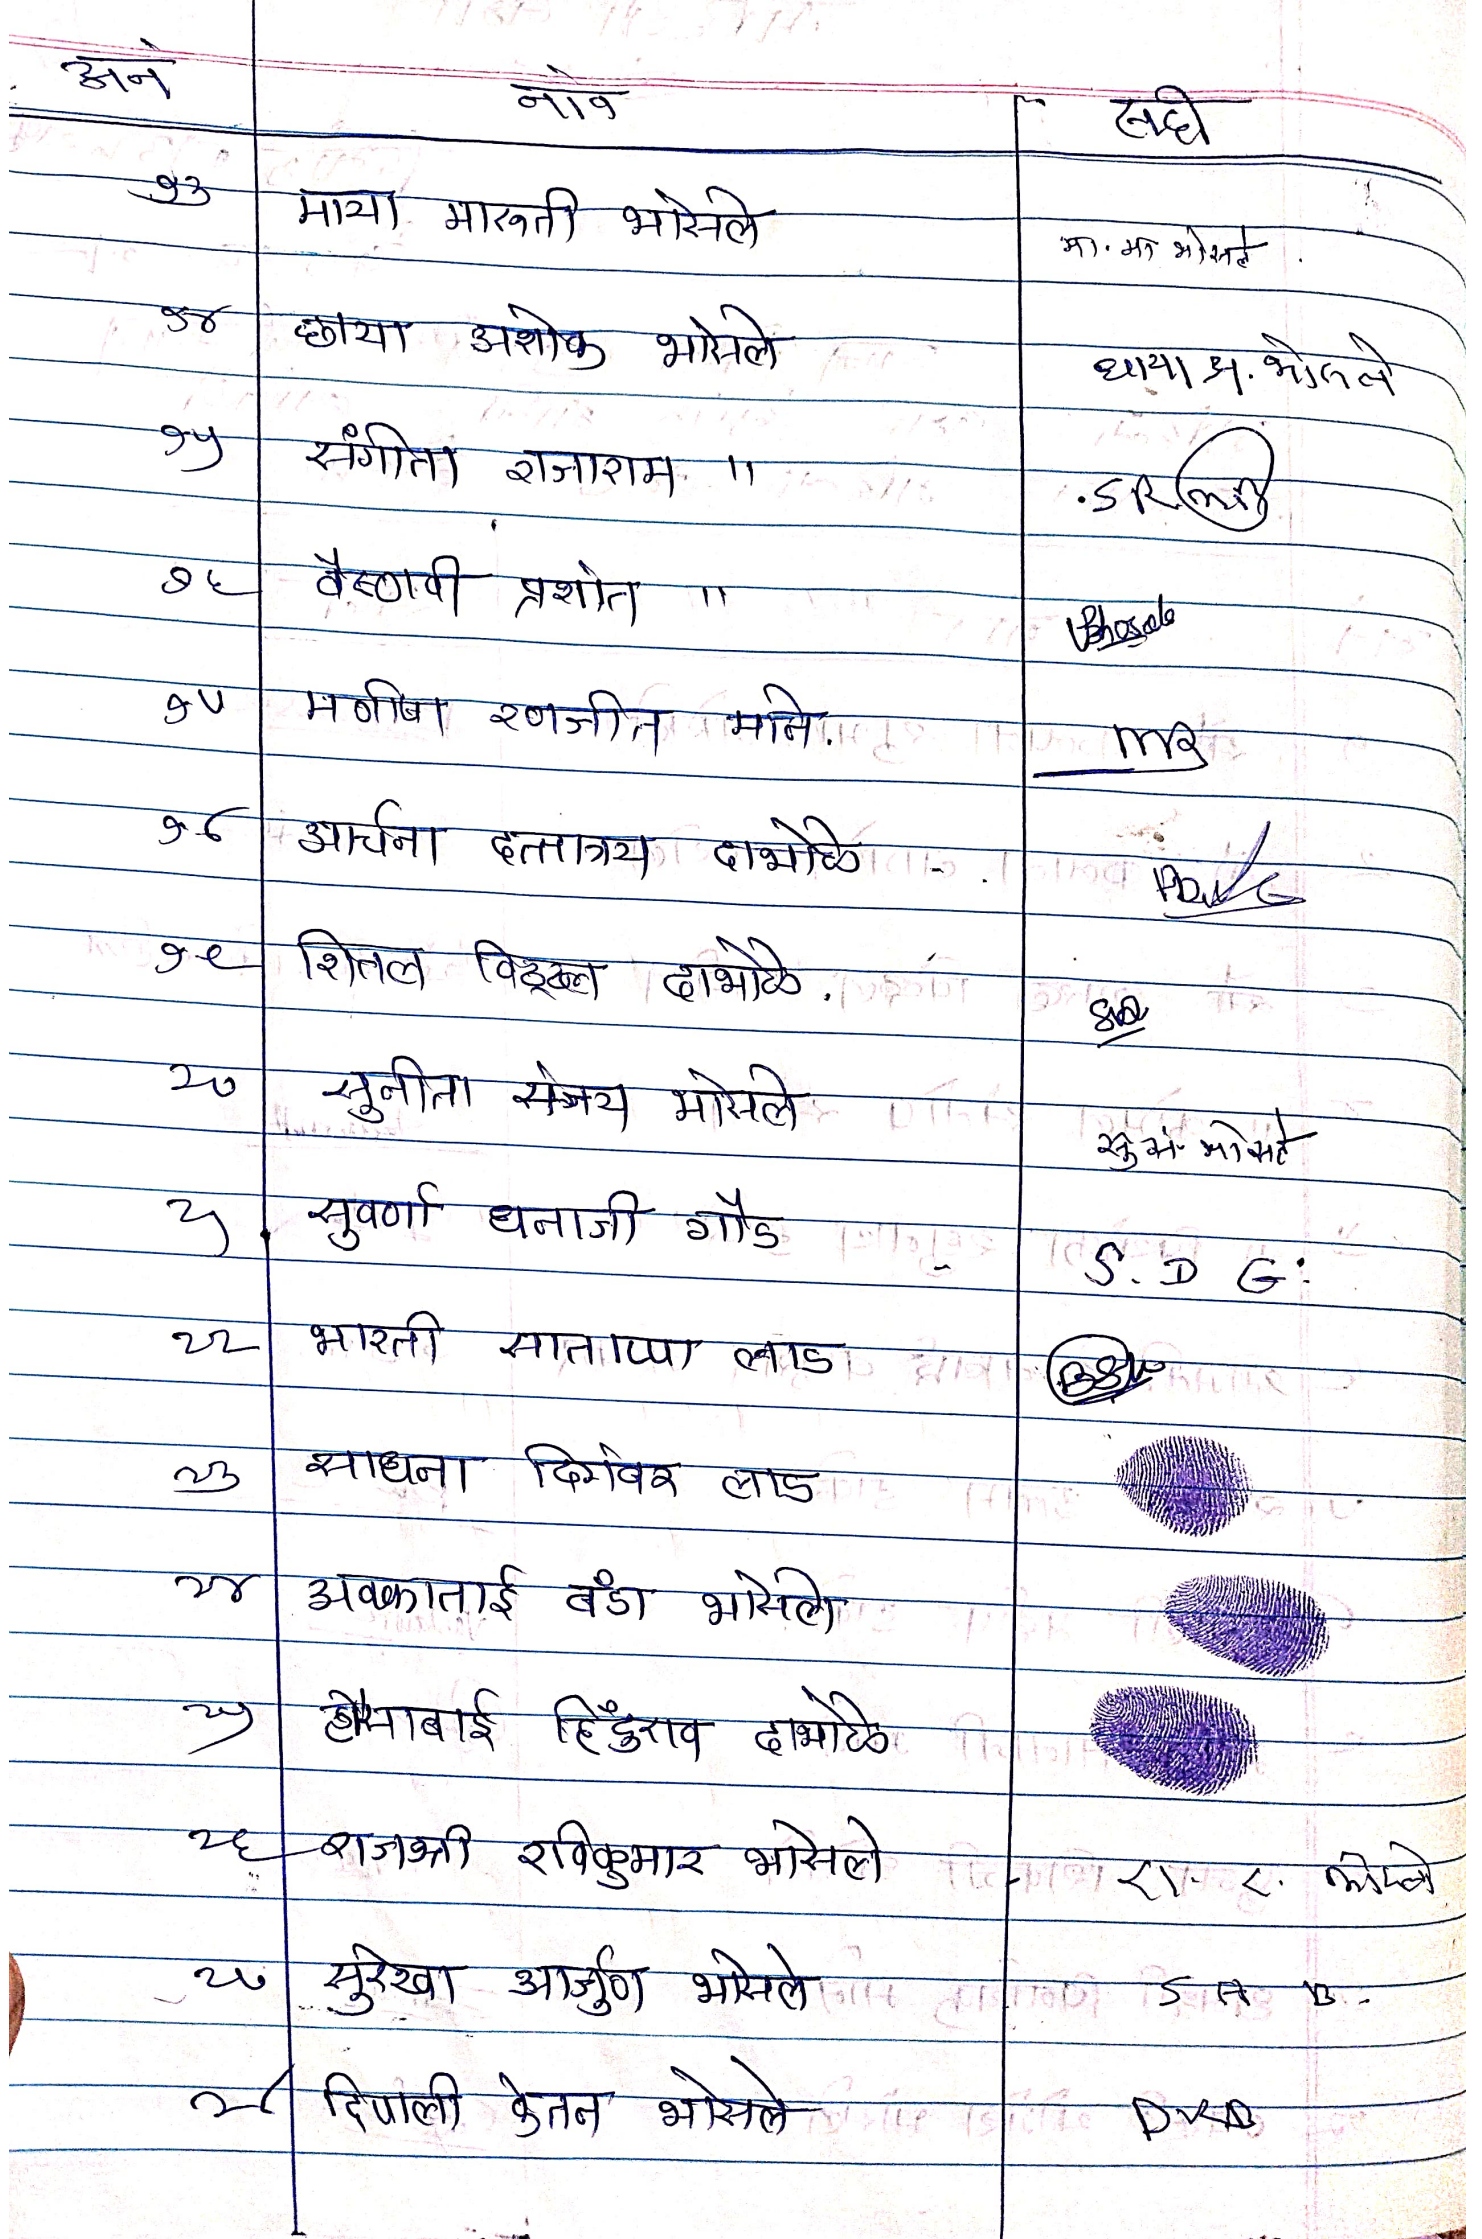 अ.नं नांव सही
१३ माया मारुती भोसले मा. मा भोसले
१४ छाया अशोक भोसले छाया अ. भोसले
१५ संगीता राजाराम " SR
१६ वैष्णवी प्रशांत " VBhosale
१७ मनीषा रणजीत माने. MR
१८ आर्चना दत्तात्रय दाभोळे
१९ शितल विठ्ठल दाभोळे.
२० सुनीता संजय भोसले सु सं. भोसले
२१ सुवर्णा धनाजी गौड S. D G.
२२ भारती साताप्पा लाड
२३ साधना दिगंबर लाड
२४ अक्काताई बंडा भोसले
२५ हौसाबाई हिंदुराव दाभोळे
२६ राजश्री रविकुमार भोसले रा. र. भोसले
२७ सुरेखा आर्जुण भोसले S A B.
२८ दिपाली केतन भोसले DKB